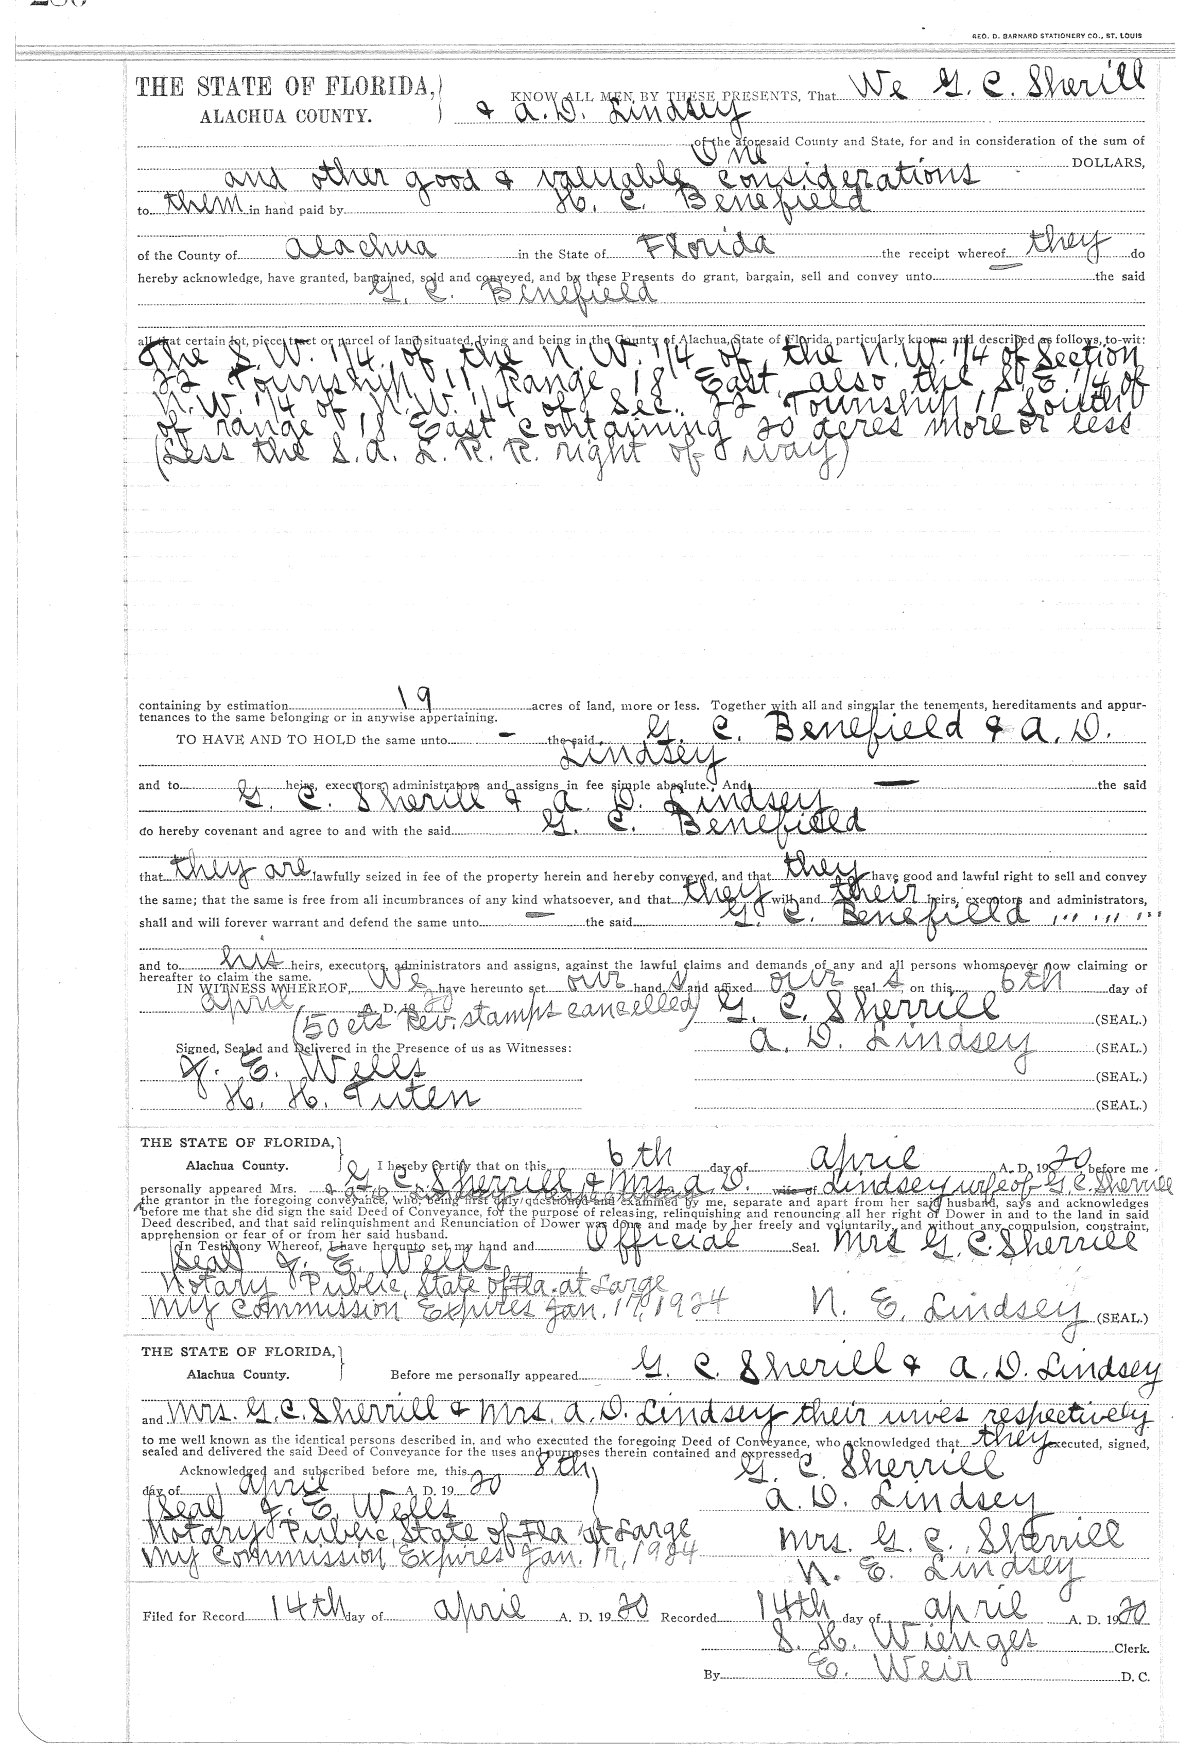 GEO. D. BARNARD STATIONERY CO., ST. LOUIS
THE STATE OF FLORIDA, KNOW ALL MEN BY THESE PRESENTS, That We G. C. Sherill
ALACHUA COUNTY. & A. D. Lindsey
of the aforesaid County and State, for and in consideration of the sum of
One DOLLARS,
and other good & valuable considerations
to them in hand paid by H. C. Benefield
of the County of Alachua in the State of Florida the receipt whereof they do
hereby acknowledge, have granted, bargained, sold and conveyed, and by these Presents do grant, bargain, sell and convey unto the said
G. C. Benefield
all that certain lot, piece, tract or parcel of land situated, lying and being in the County of Alachua, State of Florida, particularly known and described as follows, to-wit:
The S.W. 1/4 of the N.W. 1/4 of the N.W. 1/4 of Section
22 Township 11 Range 18 East, also the S.E. 1/4 of
N.W. 1/4 of N.W. 1/4 of Sec. 22 Township 11 South
of range 18 East containing 20 acres more or less
(Less the S. A. L. R. R. right of way)
containing by estimation 19 acres of land, more or less. Together with all and singular the tenements, hereditaments and appur-
tenances to the same belonging or in anywise appertaining.
TO HAVE AND TO HOLD the same unto - the said G. C. Benefield & A. D.
Lindsey
and to heirs, executors, administrators and assigns in fee simple absolute. And — the said
G. C. Sherill & A. D. Lindsey
do hereby covenant and agree to and with the said G. C. Benefield
that they are lawfully seized in fee of the property herein and hereby conveyed, and that they have good and lawful right to sell and convey
the same; that the same is free from all incumbrances of any kind whatsoever, and that they will and their heirs, executors and administrators,
shall and will forever warrant and defend the same unto — the said G. C. Benefield
and to his heirs, executors, administrators and assigns, against the lawful claims and demands of any and all persons whomsoever now claiming or
hereafter to claim the same.
IN WITNESS WHEREOF, We have hereunto set our hand s and affixed our seal s on this 6th day of
April A. D. 1920
(50 cts Rev. stamps cancelled) G. C. Sherrill (SEAL.)
A. D. Lindsey (SEAL.)
Signed, Sealed and Delivered in the Presence of us as Witnesses:
J. E. Wells (SEAL.)
H. H. Tuten (SEAL.)
THE STATE OF FLORIDA,
Alachua County. I hereby Certify that on this 6th day of April A. D. 1920 before me
personally appeared Mrs. G. C. Sherrill & Mrs. A. D. wife of Lindsey wife of G. C. Sherrill
the grantor in the foregoing conveyance, who, being first duly questioned and examined by me, separate and apart from her said husband, says and acknowledges
before me that she did sign the said Deed of Conveyance, for the purpose of releasing, relinquishing and renouncing all her right of Dower in and to the land in said
Deed described, and that said relinquishment and Renunciation of Dower was done and made by her freely and voluntarily, and without any compulsion, constraint,
apprehension or fear of or from her said husband.
In Testimony Whereof, I have hereunto set my hand and Official Seal. Mrs G. C. Sherrill
(Seal) J. E. Wells
Notary Public, State of Fla. at Large
My Commission Expires Jan. 17, 1924 N. E. Lindsey (SEAL.)
THE STATE OF FLORIDA,
Alachua County. Before me personally appeared G. C. Sherill & A. D. Lindsey
and Mrs. G. C. Sherrill & Mrs. A. D. Lindsey their wives respectively
to me well known as the identical persons described in, and who executed the foregoing Deed of Conveyance, who acknowledged that they executed, signed,
sealed and delivered the said Deed of Conveyance for the uses and purposes therein contained and expressed.
Acknowledged and subscribed before me, this 8th G. C. Sherrill
day of April A. D. 1920 A. D. Lindsey
(Seal) J. E. Wells
Notary Public, State of Fla at Large Mrs. G. C. Sherrill
My Commission Expires Jan. 17, 1924 N. E. Lindsey
Filed for Record 14th day of April A. D. 1920 Recorded 14th day of April A. D. 1920
S. H. Wienges Clerk.
By E. Weir D. C.